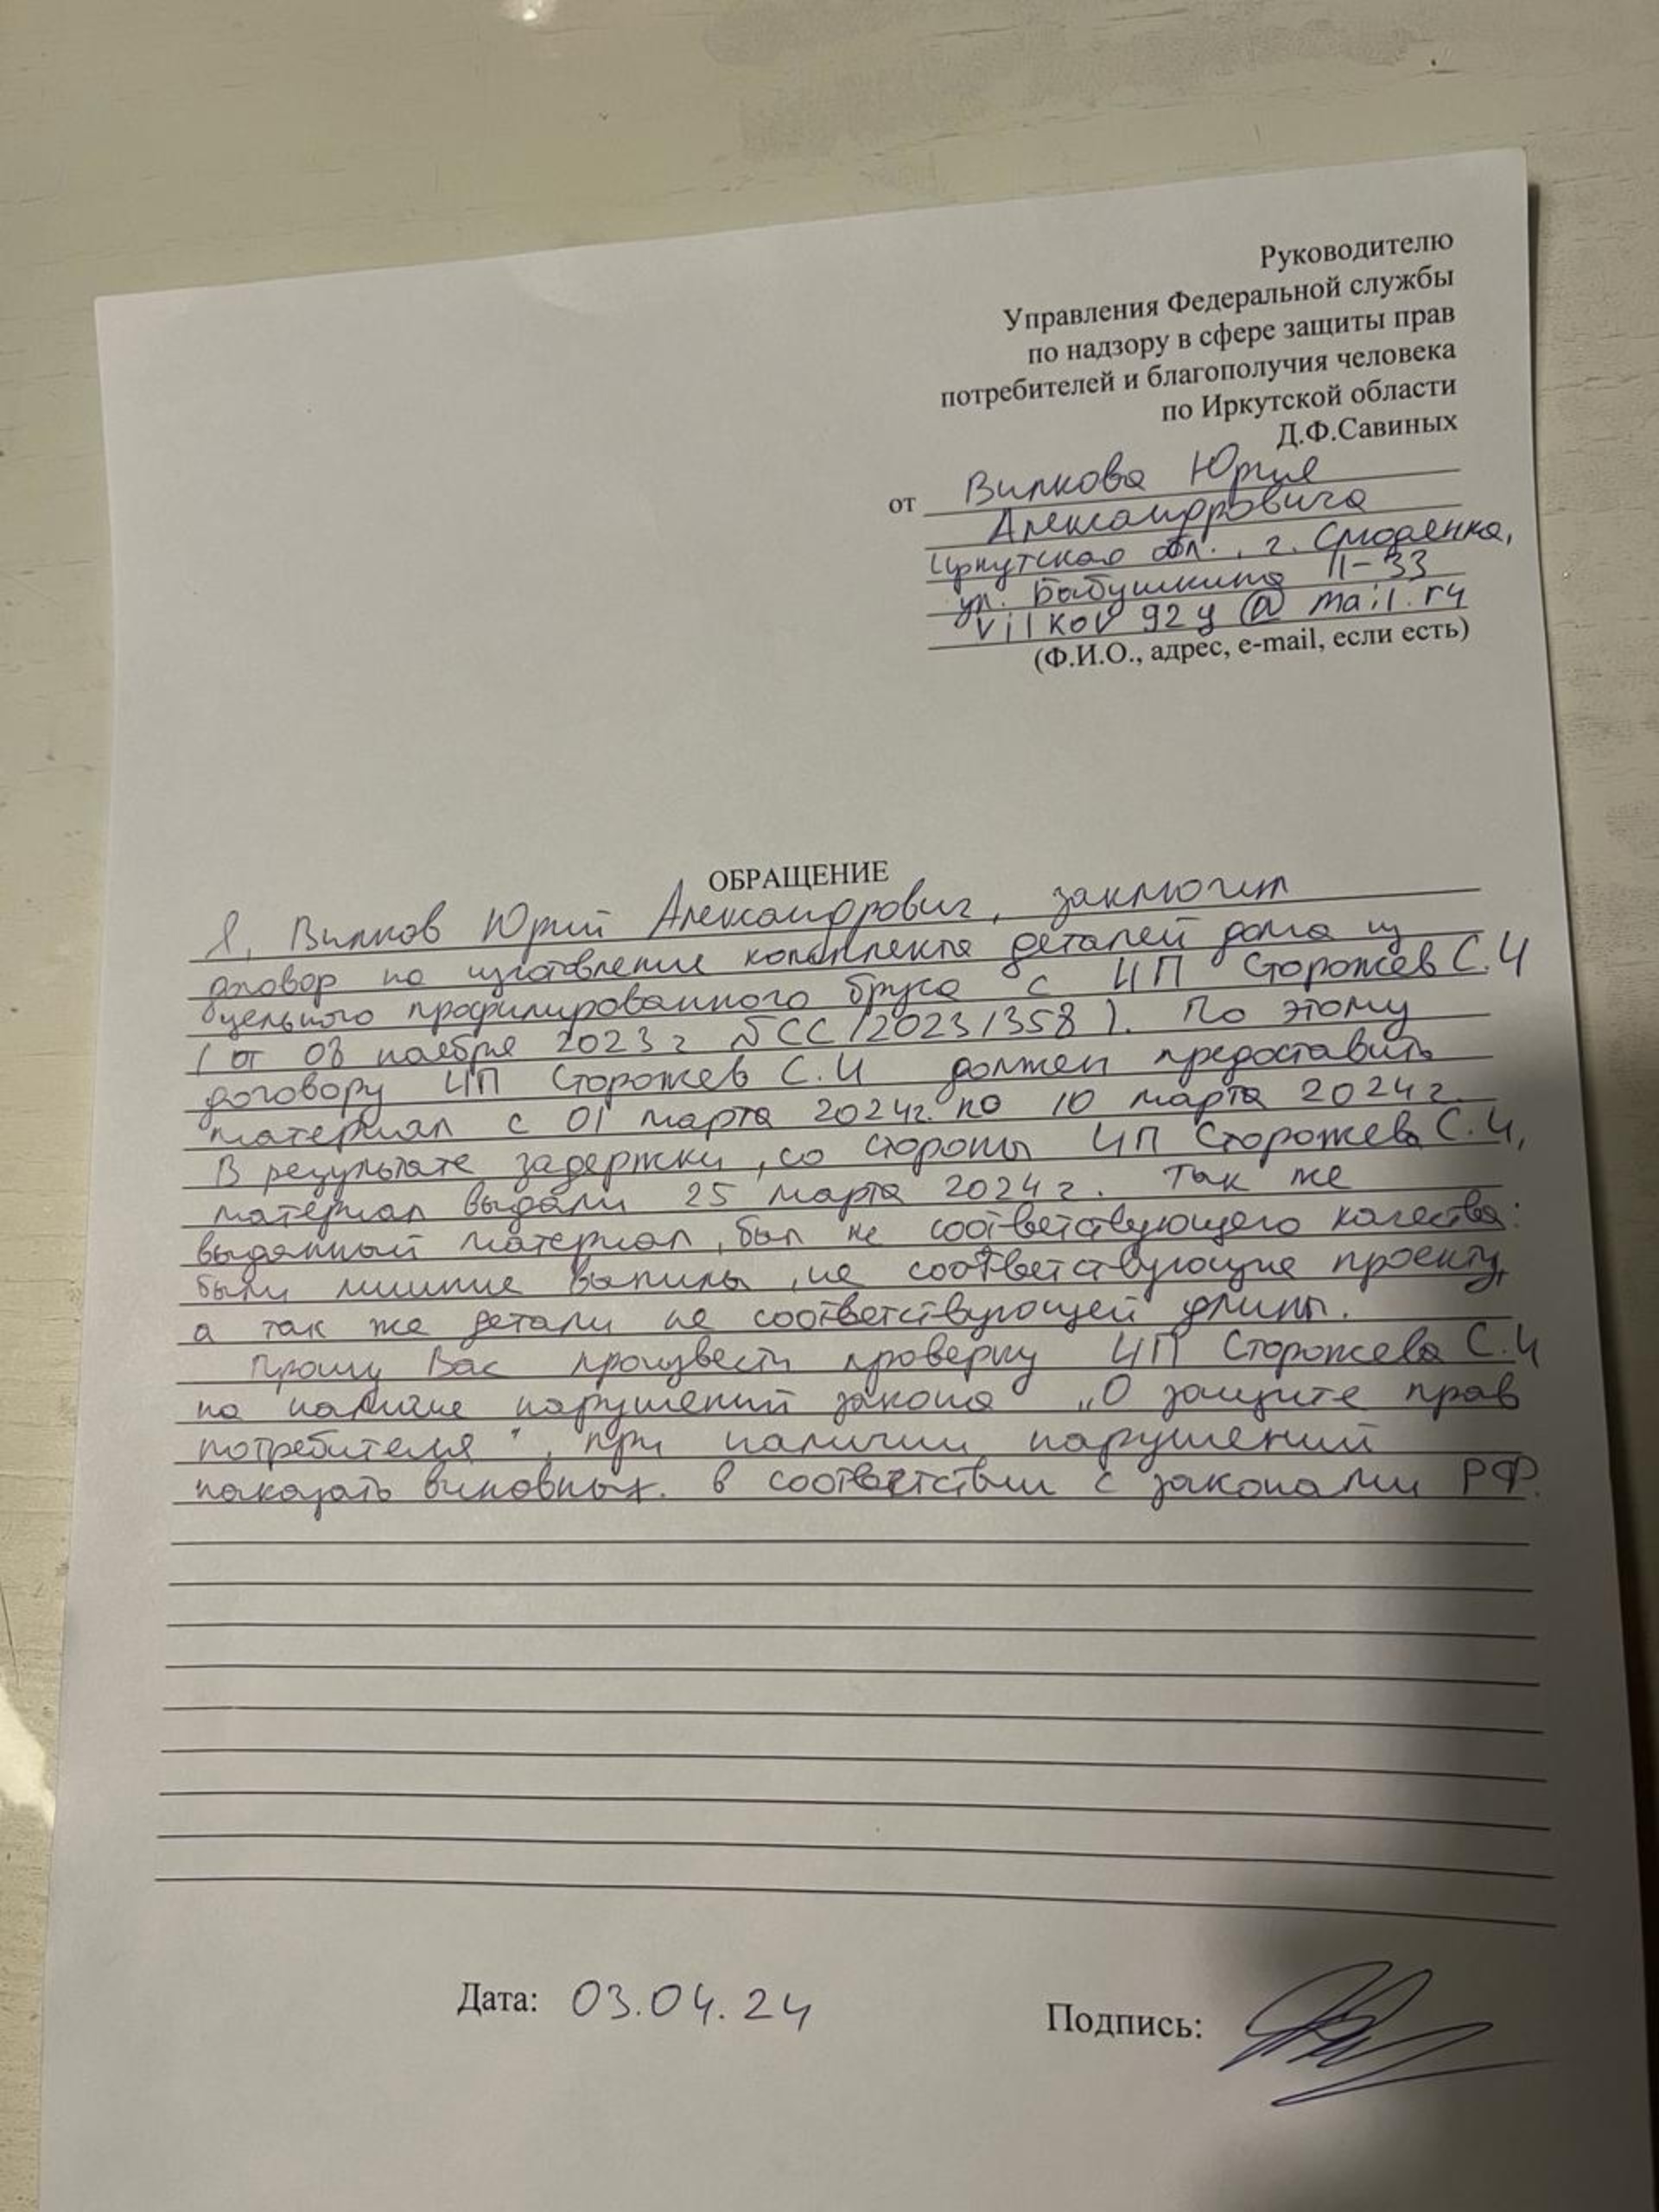 Руководителю
Управления Федеральной службы
по надзору в сфере защиты прав
потребителей и благополучия человека
по Иркутской области
Д.Ф.Савиных
от Вилкова Юрия
Александровича
Иркутская обл., г. Слюдянка,
ул. Бабушкина 11-33
vilkov92y@mail.ru
(Ф.И.О., адрес, e-mail, если есть)
ОБРАЩЕНИЕ
Я, Вилков Юрий Александрович, заключил
договор на изготовление комплекта деталей дома из
цельного профилированного бруса с ИП Сторожев С.И
(от 08 ноября 2023 г №СС/2023/358). По этому
договору ИП Сторожев С.И должен предоставить
материал с 01 марта 2024г. по 10 марта 2024 г.
В результате задержки, со стороны ИП Сторожева С.И,
материал выдали 25 марта 2024 г. Так же
выданный материал, был не соответствующего качества:
были лишние выпилы, не соответствующие проекту,
а так же детали не соответствующей длины.
Прошу Вас произвести проверку ИП Сторожева С.И
на наличие нарушений закона „О защите прав
потребителя", при наличии нарушений
наказать виновных. в соответствии с законами РФ.
Дата: 03.04.24
Подпись: